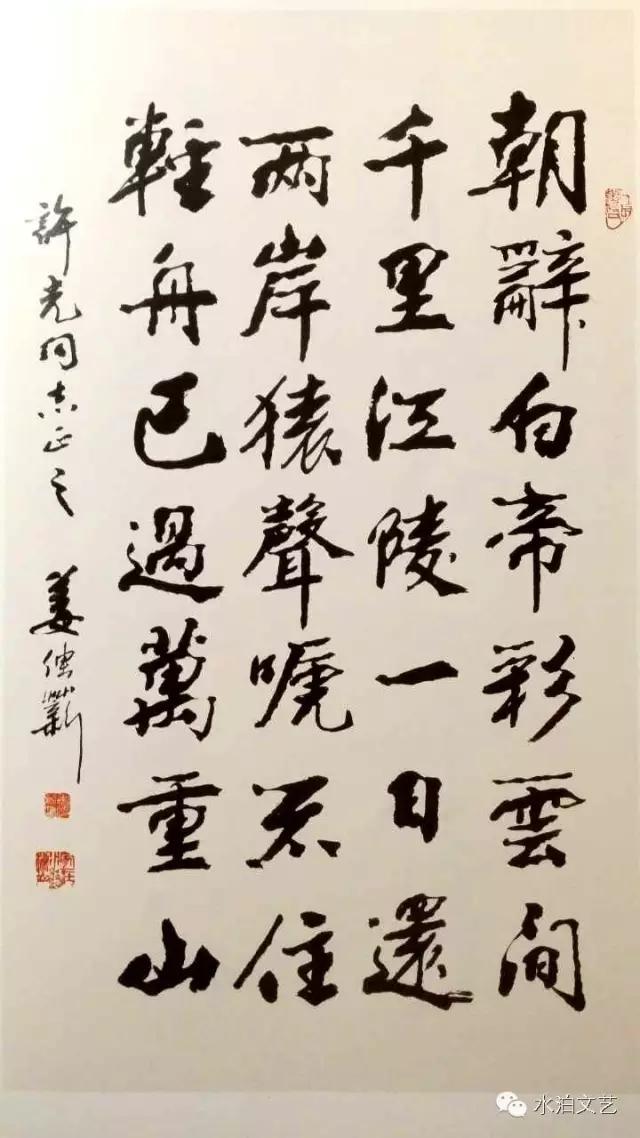 朝辭白帝彩雲間
千里江陵一日還
两岸猿聲嗁不住
輕舟已過萬重山
許光同志正之
姜
水泊文艺